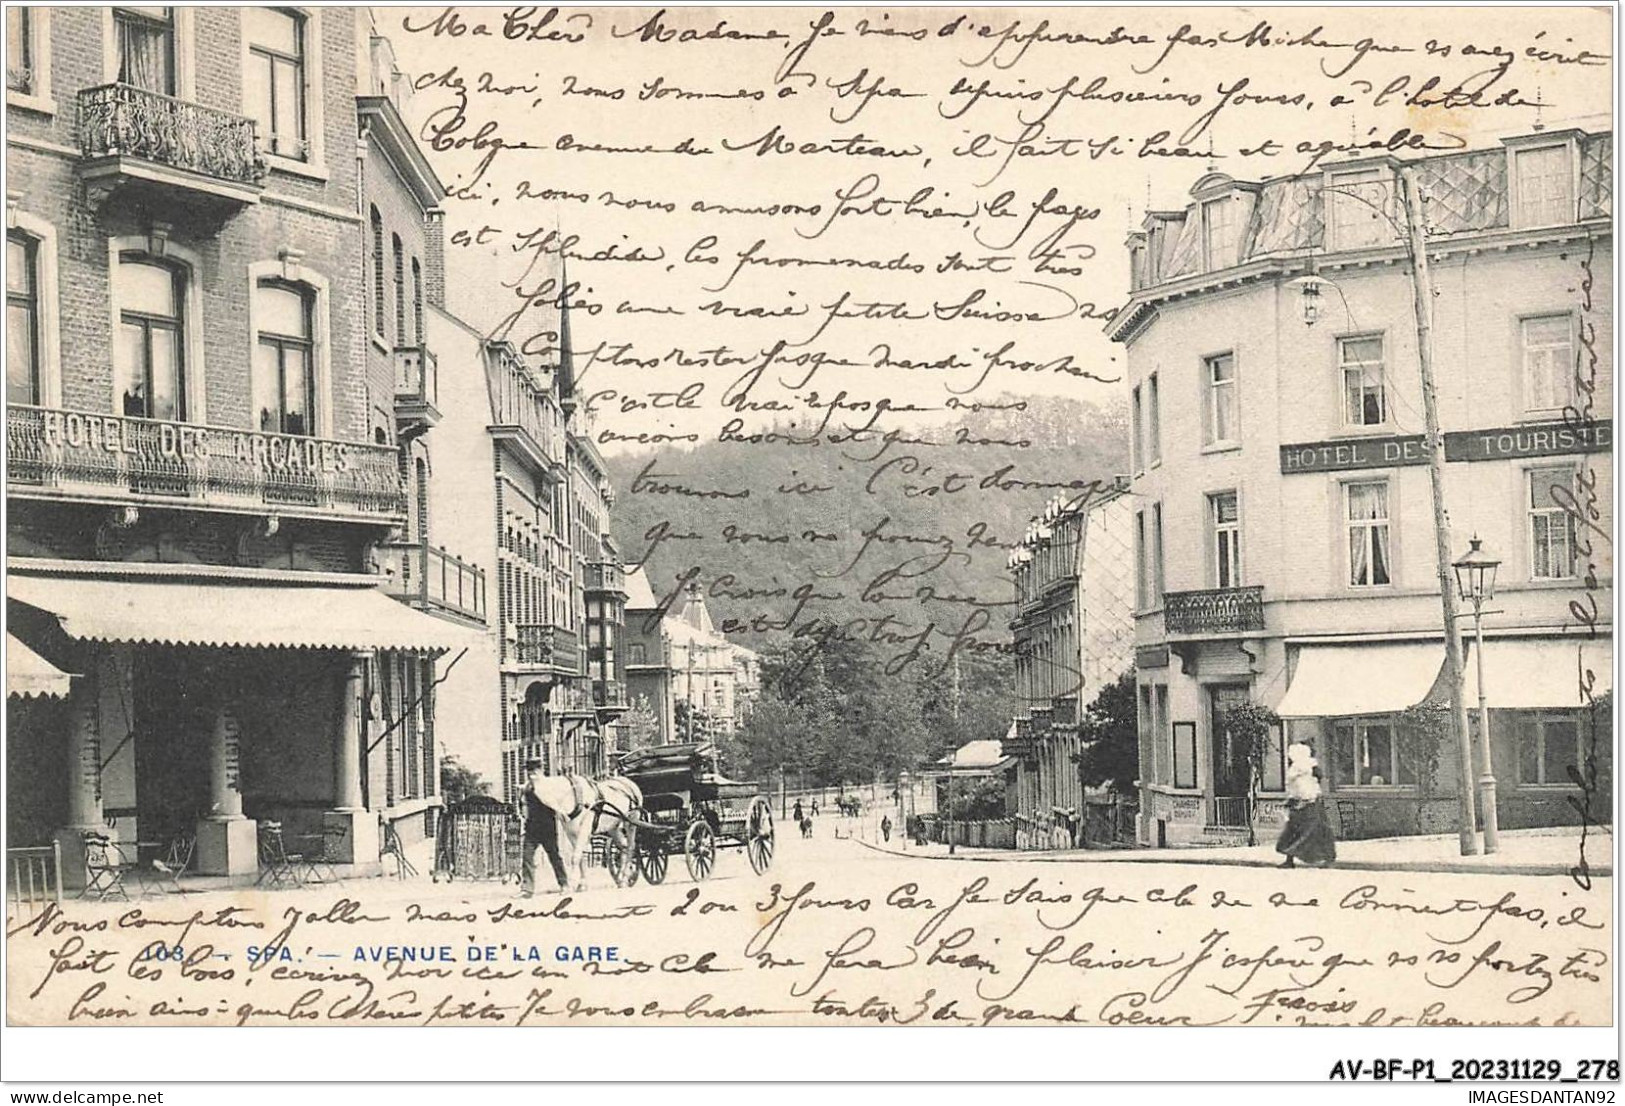 Ma Chère Madame, Je viens d'apprendre par Miche que vs avez écrit
chez moi, nous sommes à Spa depuis plusieurs jours, à l'hotel de
Cologne avenue du Marteau, il fait si beau et agréable
ici, nous nous amusons fort bien, le pays
est splendide, les promenades sont très
jolies une vraie petite Suisse ns
comptons rester jusque mardi prochain
C'est le vrai repos que nous
avions besoin et que nous
trouvons ici C'est dommage
que vous ne pouvez venir
je crois que l'année
est déjà trop
HOTEL DES ARCADES
HOTEL DES TOURISTE
Nous comptons y aller mais seulement 2 ou 3 jours car je sais que cela ne me convient pas, il
108. — SPA. — AVENUE DE LA GARE.
fait les bois, écrivez moi ici un mot cela me fera bien plaisir J'espère que vs vs portez très
bien ainsi que les chères petites Je vous embrasse toutes 3 de grand Coeur
compliments il est fort content ici
AV-BF-P1_20231129_278
delcampe.net
IMAGESDANTAN92